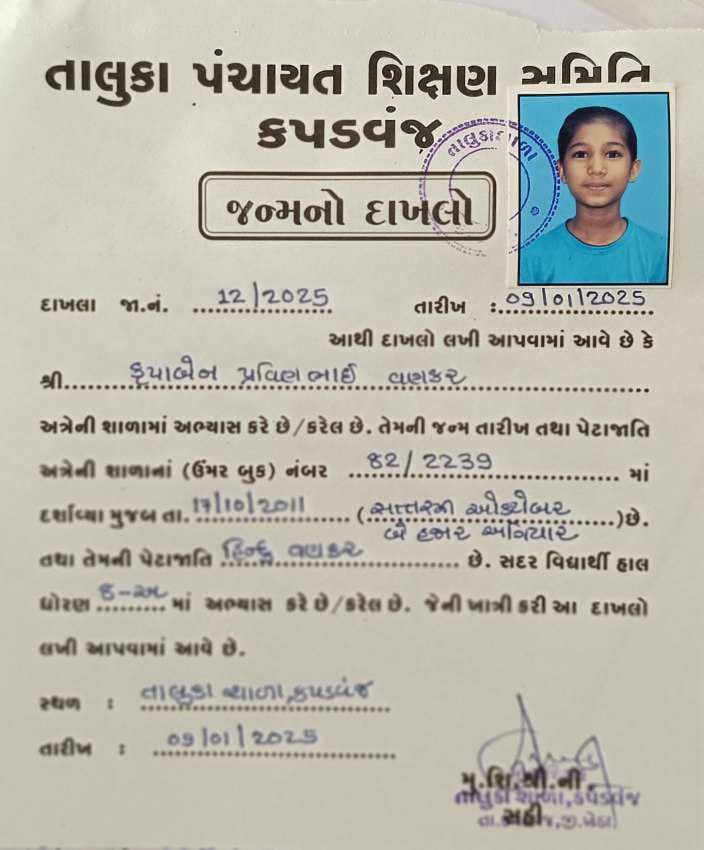 તાલુકા પંચાયત શિક્ષણ સમિતિ
કપડવંજ
તાલુકાશાળા
જન્મનો દાખલો
દાખલા જા.નં. 12/2025 તારીખ : 09/01/2025
આથી દાખલો લખી આપવામાં આવે છે કે
શ્રી. કૃપાબેન પ્રવિણભાઈ વણકર
અત્રેની શાળામાં અભ્યાસ કરે છે/કરેલ છે. તેમની જન્મ તારીખ તથા પેટાજાતિ
અત્રેની શાળાનાં (ઉંમર બુક) નંબર 82/2239 માં
દર્શાવ્યા મુજબ તા. 17/10/2011 (સત્તરમી ઓક્ટોબર
બે હજાર અગિયાર )છે.
તથા તેમની પેટાજાતિ હિન્દુ વણકર છે. સદર વિદ્યાર્થી હાલ
ધોરણ 8-અ માં અભ્યાસ કરે છે/કરેલ છે. જેની ખાત્રી કરી આ દાખલો
લખી આપવામાં આવે છે.
સ્થળ : તાલુકા શાળા, કપડવંજ
તારીખ : 09/01/2025
મુ.શિ.શ્રી.ની
તાલુકા શાળા, કપડવંજ
સહી